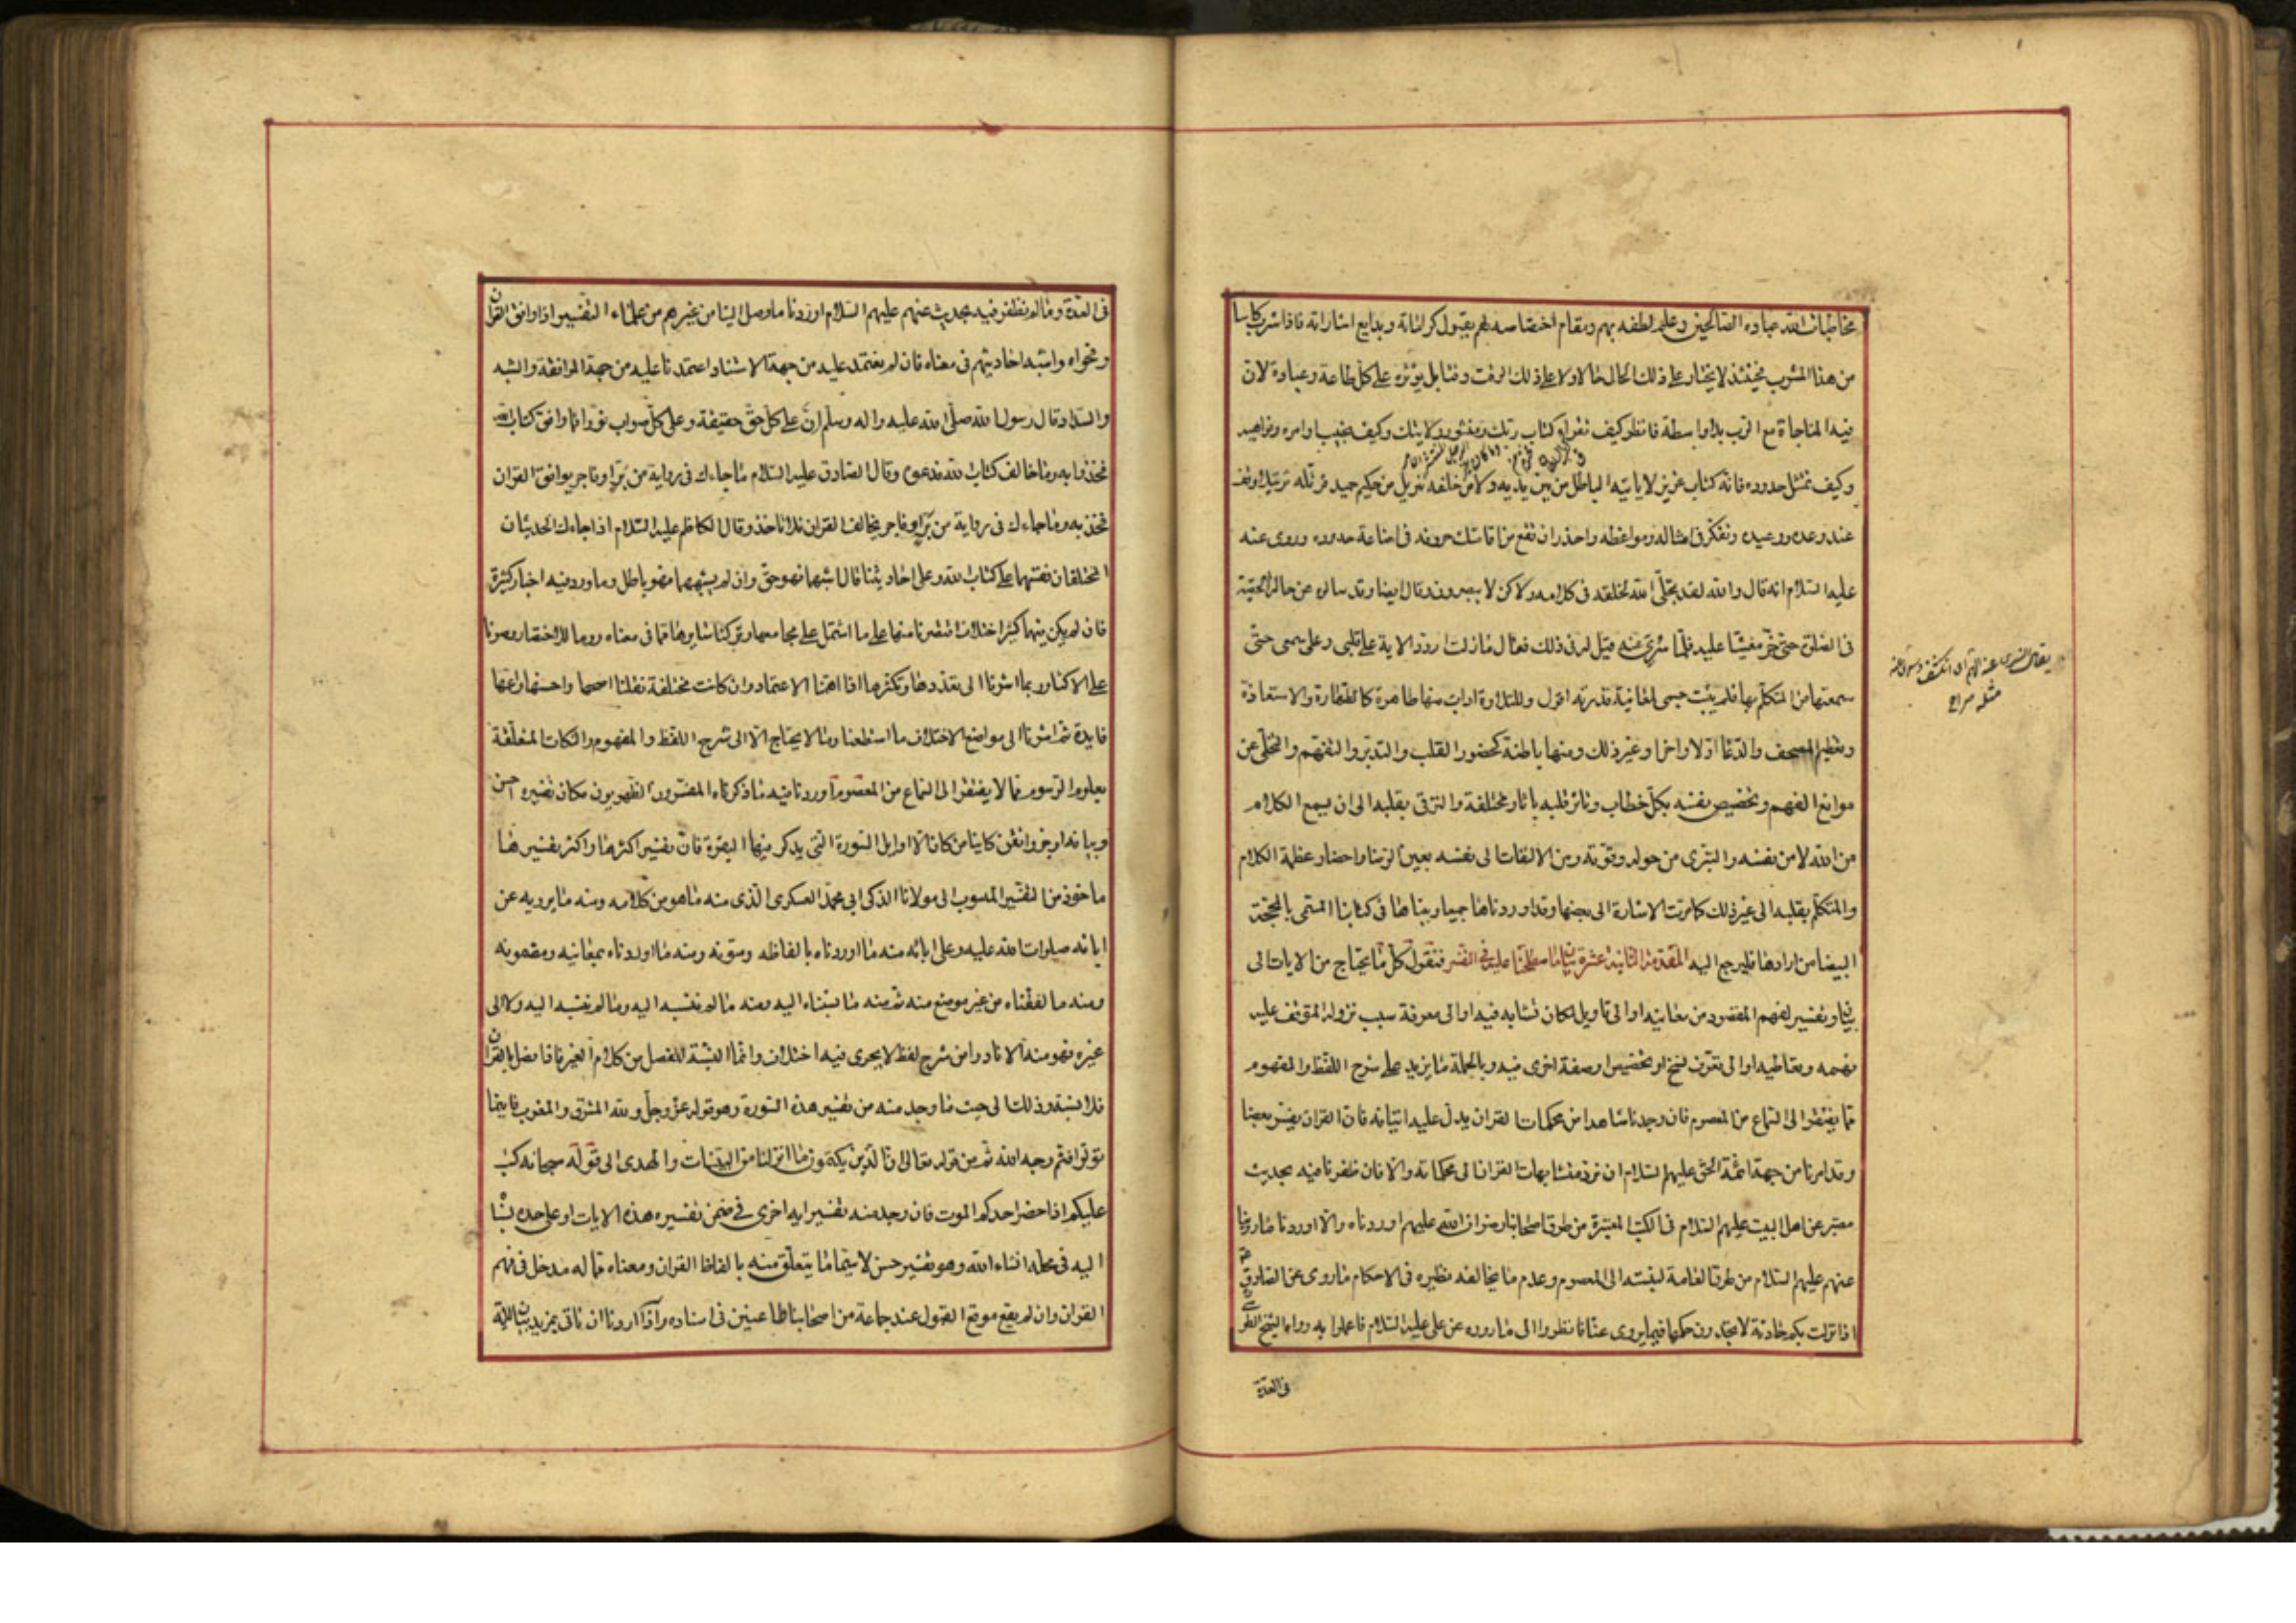 مخاطبات الله عباده الصالحين وعلم لطفه بهم ومقام اختصاصه لهم بقبول كراماته وبدايع اشاراته فاذا شرب كاسا
من هذا المشرب فحينئذ لا يختار على ذلك الحال حالا ولا على ذلك الوقت وقتا بل يؤثره على كل طاعة وعبادة لان
فيه المناجاة مع الرب بلا واسطة فانظر كيف تقرا كتاب ربك ومنشور ولايتك وكيف تجيب اوامره ونواهيه
وكيف تمتثل حدوده فانه كتاب عزيز لا ياتيه الباطل من بين يديه ولا من خلفه تنزيل من حكيم حميد فرتله ترتيلا وقف
عند وعده ووعيده وتفكر في امثاله ومواعظه واحذر ان تقع من اقامتك حروفه في اضاعة حدوده وروى عنه
عليه السلام انه قال والله لقد تجلى الله لخلقه في كلامه ولاكن لا يبصرون وقال ايضا وقد سالوه عن حالة لحقته
في الصلوة حتى خر مغشيا عليه فلما سرى عنه قيل له في ذلك فقال ما زلت اردد الاية على قلبى وعلى سمعى حتى
سمعتها من المتكلم بها فلم يثبت جسمى لمعاينة قدرته اقول وللتلاوة اداب منها ظاهرة كالطهارة والاستعاذة
وتعظيم المصحف والدعا اولا واخرا وغير ذلك ومنها باطنة كحضور القلب والتدبر والتفهم والتخلى عن
موانع الفهم وتخصيص نفسه بكل خطاب وتاثر قلبه باثار مختلفة والترقى بقلبه الى ان يسمع الكلام
من الله لا من نفسه والتبرى من حوله وقوته ومن الالتفات الى نفسه بعين الرضا واحضار عظمة الكلام
والمتكلم بقلبه الى غير ذلك كما مرت الاشارة الى بعضها وقد اوردناها جميعا وبيناها في كتابنا المسمى بالمحجة
البيضا من ارادها فليرجع اليه المقدمة الثانية عشرة بيان ما اصطلحنا عليه في التفسير فنقول كل ما يحتاج من الايات الى
بيان وتفسير لفهم المقصود من معانيه او الى تاويل لمكان تشابه فيه او الى معرفة سبب نزوله المتوقف عليه
فهمه وتعاطيه او الى تعرف نسخ او تخصيص او صفة اخرى فيه وبالجملة ما يزيد على شرح اللفظ والمفهوم
مما يفتقر الى السماع من المعصوم فان وجدنا شاهدا من محكمات القران يدل عليه اتينا به فان القران يفسر بعضه بعضا
وقد امرنا من جهة ائمة الحق عليهم السلام ان نرد متشابهات القران الى محكماته والا فان ظفرنا فيه بحديث
معتبر عن اهل البيت عليهم السلام في الكتب المعتبرة من طرق اصحابنا رضوان الله عليهم اوردناه والا اوردنا ما روينا
عنهم عليهم السلام من طرق العامة لنسبته الى المعصوم وعدم ما يخالفه نظيره في الاحكام ما روى عن الصادق
اذا نزلت بكم حادثة لا تجدون حكمها فيما يروى عنا فانظروا الى ما رووه عن على عليه السلام فاعملوا به رواه الشيخ
في العدة
في العدة وما لم نظفر فيه بحديث عنهم عليهم السلام اوردنا ما وصل الينا من غيرهم من علماء التفسير اذا وافق القران
وفحواه واشبه احاديثهم في معناه فان لم نعتمد عليه من جهة الاسناد اعتمدنا عليه من جهة الموافقة والشبه
والسداد قال رسول الله صلى الله عليه واله وسلم ان على كل حق حقيقة وعلى كل صواب نورا فما وافق كتاب الله
فخذوا به وما خالف كتاب الله فدعوه وقال الصادق عليه السلام ما جاءك في رواية من بر او فاجر يوافق القران
فخذ به وما جاءك في رواية من بر او فاجر يخالف القران فلا تاخذ وقال الكاظم عليه السلام اذا جاءك الحديثان
المختلفان فقسهما على كتاب الله وعلى احاديثنا فان اشبهها فهو حق وان لم يشبهها فهو باطل وما ورد فيه اخبار كثيرة
فان لم يكن بينها كثير اختلاف اقتصرنا منها على ما اشتمل على مجامعها وتركنا سايرها مما في معناه روما للاختصار وصونا
على الاكثار وربما اشرنا الى تعددها وتكثرها اذا اهمنا الاعتماد وان كانت مختلفة نقلنا اصحها واحسنها واعمها
فايدة ثم اشرنا الى مواضع الاختلاف ما استطعنا وما لا يحتاج الا الى شرح اللفظ والمفهوم والنكات المتعلقة
بعلوم الرسوم مما لا يفتقر الى السماع من المعصوم اوردنا فيه ما ذكرناه المفسرون الظهريون مكان تفسيره احسن
وبيانه اوجز واتقن كاينا من كان الا اوايل السورة التى يذكر فيها البقرة فان تفسير اكثرها واكثر تفسيرها
ماخوذ من التفسير المنسوب الى مولانا الذكى ابى محمد العسكرى الذى منه ما هو من كلامه ومنه ما يرويه عن
ابائه صلوات الله عليه وعلى ابائه منه ما اوردناه بالفاظه ومتونه ومنه ما اوردناه بمعانيه ومضمونه
ومنه ما لفقناه من غير موضع منه ثم منه ما نسبناه اليه ومنه ما لم ننسبه اليه وما لم ننسبه اليه ولا الى
غيره فهو منه الا نادرا من شرح لفظ لا يجرى فيه اختلاف وانما النسبة للفصل بين كلام الغير فاذا فصل بالقران
فلا نسبة وذلك الى حيث ما وجد منه من تفسير هذه السورة وهو قوله عز وجل ولله المشرق والمغرب فاينما
تولوا فثم وجه الله ثم من قوله تعالى ان الذين يكتمون ما انزلنا من البينات والهدى الى قوله سبحانه كتب
عليكم اذا حضر احدكم الموت فان وجد منه تفسير اية اخرى في ضمن تفسيره هذه الايات او على حده نسبنا
اليه في محله انشاء الله وهو تفسير حسن لا سيما ما يتعلق منه بالفاظ القران ومعناه مما له مدخل في فهم
القران وان لم يقع موقع القبول عند جماعة من اصحابنا طاعنين في اسناده واذا اردنا ان ناتى بمزيد بيان